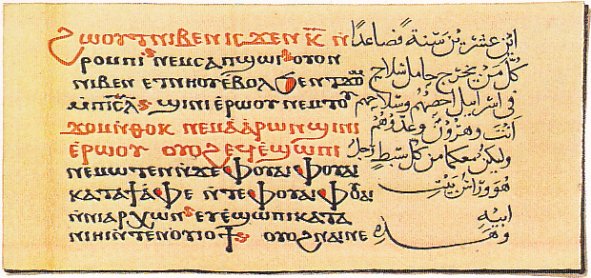 ϩⲱⲟⲩⲧ ⲛⲓⲃⲉⲛ ⲓⲥϫⲉⲛ ⲕ̅ ⲛ̀
ⲣⲟⲙⲡⲓ ⲛⲉⲙ ⲥⲁⲡϣⲱⲓ ⲟⲩⲟⲛ
ⲛⲓⲃⲉⲛ ⲉⲧⲛⲏⲟⲩ ⲉⲃⲟⲗ ϧⲉⲛ
ϣⲓⲛⲓ ⲉⲣⲱⲟⲩ ⲛⲉⲙ ⲧⲟⲩ
ϫⲟⲙ ⲛⲑⲟⲕ ⲛⲉⲙ ⲁⲁⲣⲱⲛ ϣⲓⲛⲓ
ⲉⲣⲱⲟⲩ ⲟⲩⲟϩ ⲉⲩⲉϣⲱⲡⲓ
ⲛⲉⲙⲱⲧⲉⲛ ⲛϫⲉ ⲫⲟⲩⲁⲓ ⲫⲟⲩⲁⲓ
ⲕⲁⲧⲁ ⲛⲧⲉ ⲫⲟⲩⲁⲓ ⲫⲟⲩⲁⲓ
ⲛⲛⲓⲁⲣⲭⲱⲛ ⲉⲩⲉϣⲱⲡⲓ ⲕⲁⲧⲁ
ⲛⲓⲏⲓ ⲛⲧⲉ ⲛⲟⲩⲓⲟϯ ⲟⲩⲟϩ ⲛⲁⲓ ⲛⲉ
ابن عشرين سنة فصاعدًا
كل من يخرج حامل سلاح
في اسراييل احصهم وسلاحهم
انت وهرون وعدوهم
وليكن معكما من كل سبط رجل
هو وراس بيت
ابيه
وهذه